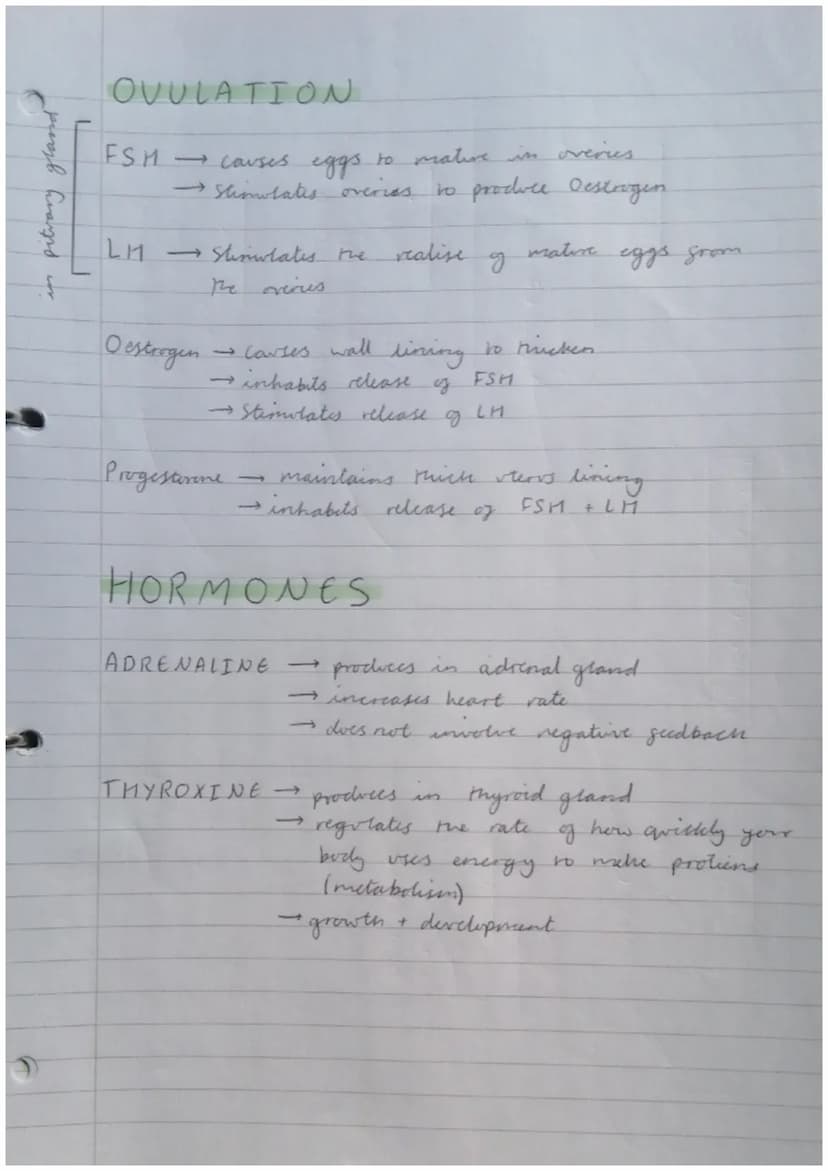 OVULATION
in pituitary gland
FSH → causes eggs to mature in overies
→ stimulates overies to produce Oestrogen
LH → stimulates the realise of mature eggs from
the overies
Oestrogen → causes wall lining to thicken
→ inhabits release of FSH
→ stimulates release of LH
Progesterone → maintains thick uterus lining
→ inhabits release of FSH + LH
HORMONES
ADRENALINE → produces in adrenal gland
→ increases heart rate
→ does not involve negative feedback
THYROXINE → produces in thyroid gland
→ regulates the rate of how quickly your
body uses energy to make proteins
(metabolism)
→ growth + development